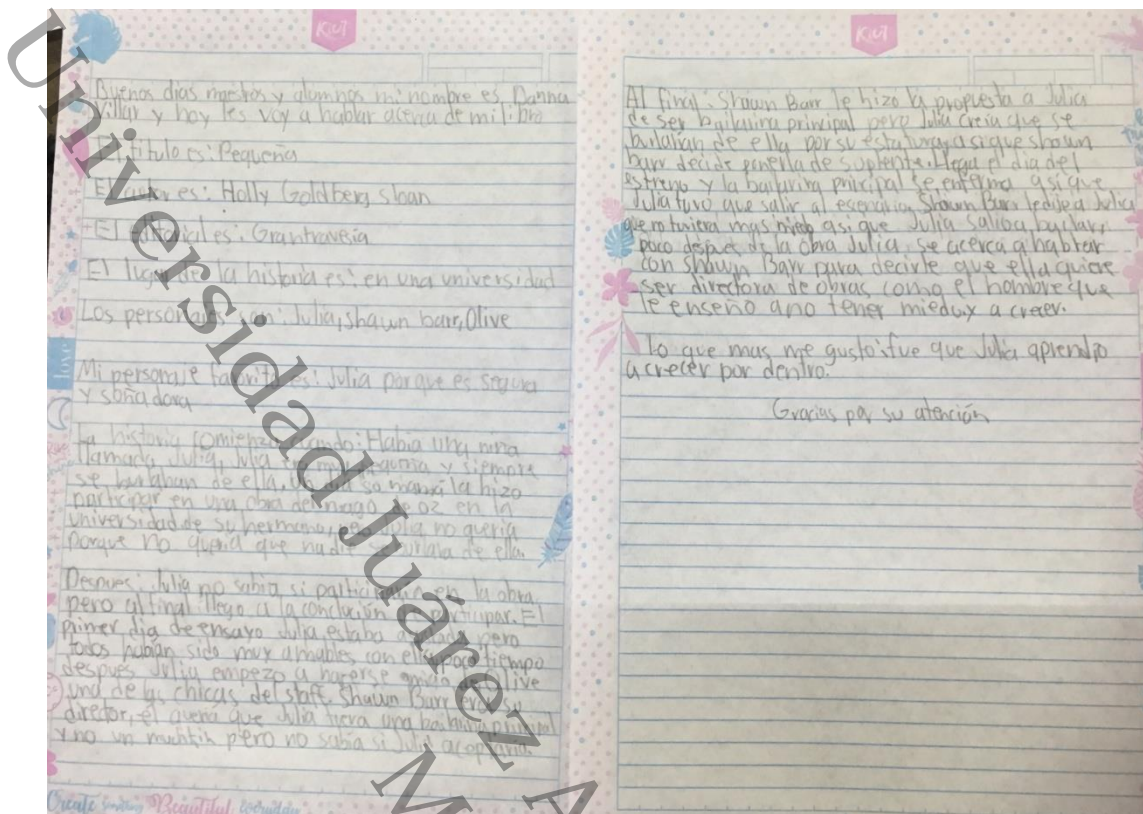 KiUT
Buenos dias maestros y alumnos mi nombre es Danna
Villar y hoy les voy a hablar acerca de mi libro
El titulo es: Pequeña
El autor es: Holly Goldberg Sloan
El editorial es: Grantravesia
El lugar de la historia es: en una universidad
Los personajes son: Julia, shawn barr, Olive
Mi personaje favorito es: Julia porque es segura
y soñadora
La historia comienza cuando: Habia una niña
llamada Julia, Julia pequeña y siempre
se burlaban de ella, un dia su mamá la hizo
participar en una obra del mago de oz en la
universidad de su hermano, pero Julia no queria
porque no queria que nadie se burlara de ella.
Despues: Julia no sabia si participar en la obra,
pero al final llego a la conclusión participar. El
primer dia de ensayo Julia estaba pero
todos habian sido muy amables con ella, poco tiempo
despues Julia empezo a hacerse amiga de Olive
una de las chicas del staff. Shawn Barr era su
director, el queria que Julia fuera una bailarina principal
y no un munchkin pero no sabia si Julia aceptaria
Create Beautiful everyday
love
KiUT
Al final: Shawn Barr le hizo la propuesta a Julia
de ser bailarina principal pero Julia creia que se
burlaban de ella por su estatura, asi que shawn
barr decide ponerla de suplente. Llega el dia del
estreno y la bailarina principal se enferma asi que
Julia tuvo que salir al escenario, Shawn Barr le dice a Julia
que no tuviera mas miedo asi que Julia salio a bailar,
poco despues de la obra Julia, se acerca a hablar
con Shawn Barr para decirle que ella quiere
ser directora de obras como el hombre que
le enseño a no tener miedo y a crecer.
Lo que mas me gusto: fue que Julia aprendio
a crecer por dentro.
Gracias por su atención
Universidad Juárez A
M